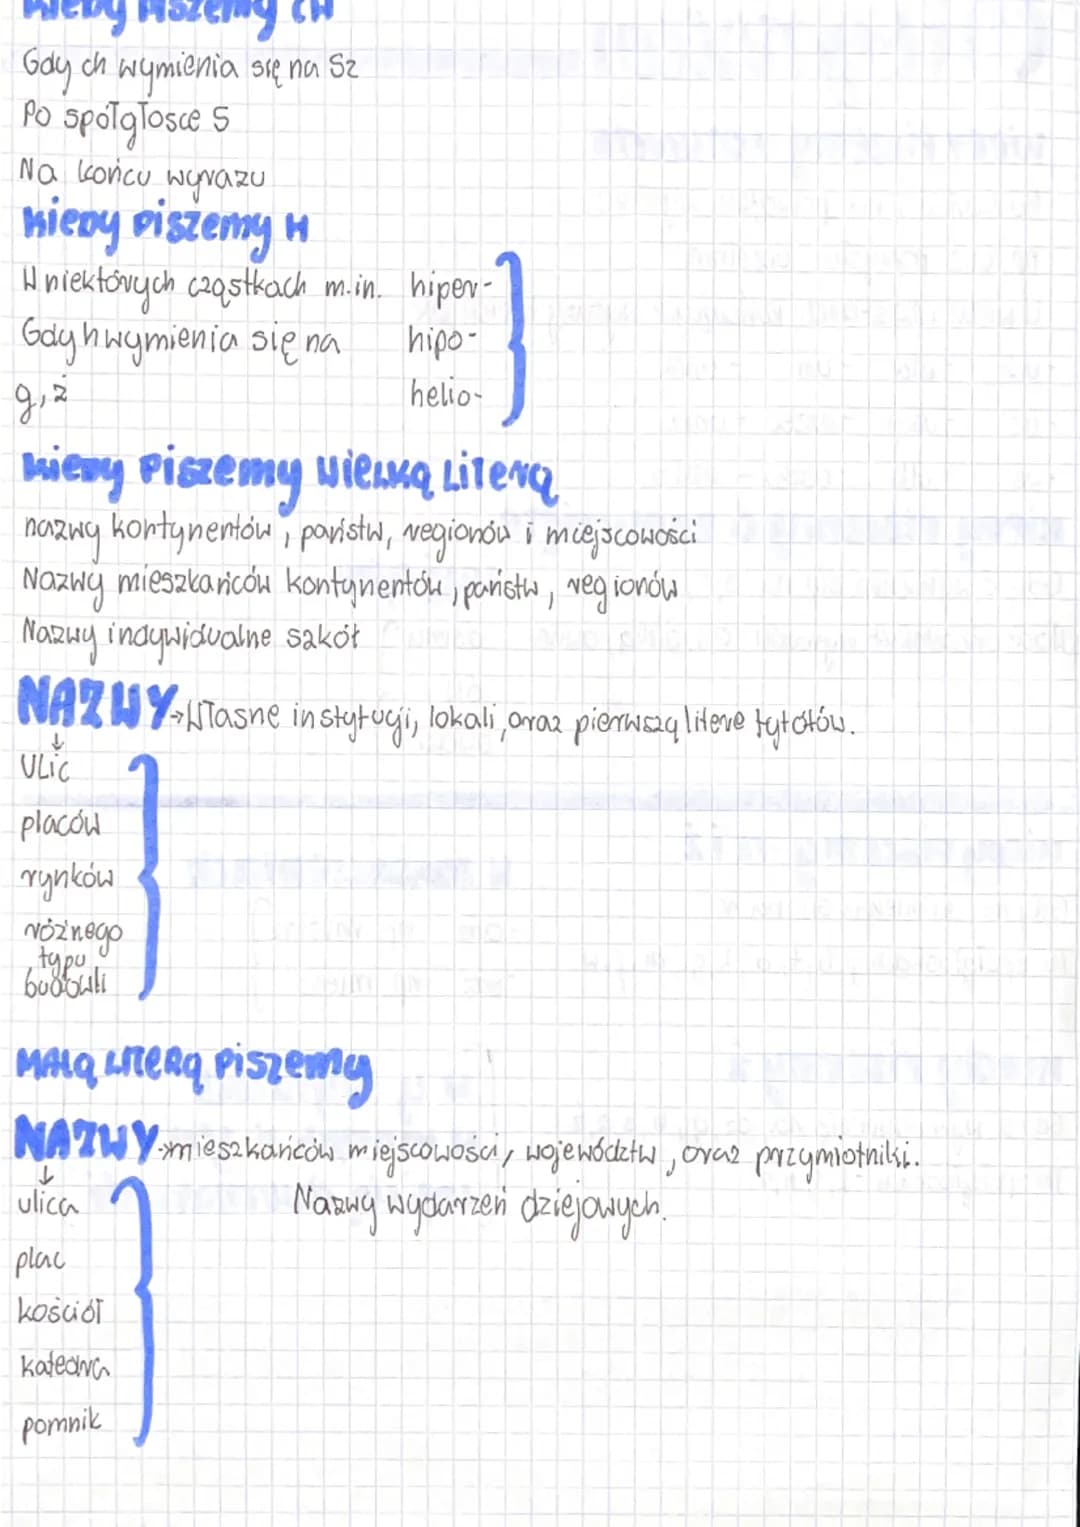 Kiedy Piszemy CH
Gdy ch wymienia się na Sz
Po spółgłosce S
Na końcu wyrazu
Kiedy piszemy H
W niektórych cząstkach m.in. hiper-
Gdy h wymienia się na hipo-
g, ż helio-
Kiedy Piszemy Wielką Literą
nazwy kontynentów, państw, regionów i miejscowości
Nazwy mieszkańców kontynentów, państw, regionów
Nazwy indywidualne szkół
NAZWY→Własne instytucji, lokali, oraz pierwszą litere tytółów.
↓
ULic
placów
rynków
różnego
typu
budowli
MAłą LITERą Piszemy
NAZWY→mieszkańców miejscowości, województw, oraz przymiotniki.
↓
ulica Nazwy wydarzeń dziejowych.
plac
kościół
katedra
pomnik